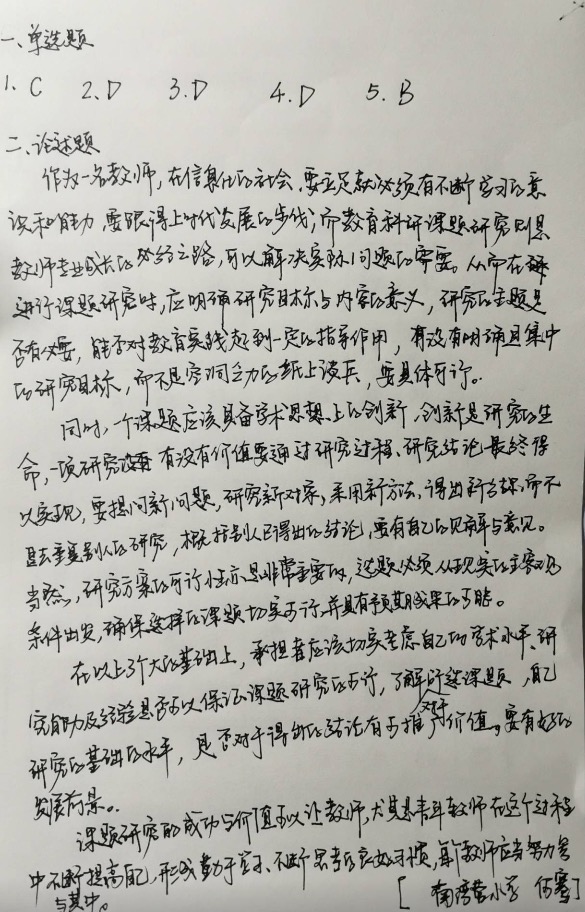 一、单选题
1. C 2. D 3. D 4. D 5. B
二、论述题
作为一名教师，在信息化的社会，要立足就必须有不断学习的意
识和能力，要跟得上时代发展的步伐，而教育科研课题研究则是
教师专业成长的必经之路，可以解决实际问题的需要。从而在
进行课题研究时，应明确研究目标与内容的意义，研究的主题是
否有必要，能否对教育实践起到一定的指导作用，有没有明确且集中
的研究目标，而不是空洞乏力的纸上谈兵，要具体可行。
同时，一个课题应该具备学术思想上的创新，创新是研究的生
命，一项研究有没有价值要通过研究过程、研究结论最终得
以实现，要想问新问题，研究新对象，采用新方法，得出新结，而不
是去重复别人的研究，概括别人已得出的结论，要有自己的见解与意见。
当然，研究方案的可行性亦是非常重要的，选题必须从现实的主客观
条件出发，确保选择的课题切实可行，并具有预期成果的可能。
在以上3个大的基础上，承担者应该切实考虑自己的学术水平、研
究能力及经验是否可以保证课题研究的可行，了解所选课题，自己
研究的基础的水平，是否对于得出的结论有可推广价值。要有好的
对于
发展前景。
课题研究的成功与价值可以让教师，尤其是青年教师在这个过程
中不断提高自己，形成勤于学习、不断思考的良好习惯，每个教师应当努力参
与其中。 [南湾营小学 何骞]